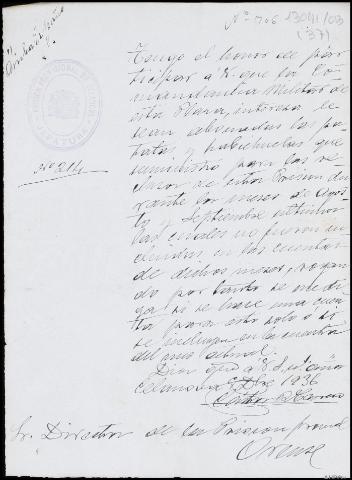 Nº 706 13041/03
(37)
¡Arriba España!
Tengo el honor de par-
ticipar a V. que la Co-
mandancia Militar de
esta Plaza, interesa le
sean abonadas las pa-
tatas y habichuelas que
suministró para los re-
clusos de esta Prision du-
rante los meses de Agos-
to y Septiembre ultimos
las cuales no fueron in-
cluidas, en las cuentas
de dichos meses, rogan-
do por tanto se me di-
ga si se hace una cuen-
ta para esto solo o si
se incluyen en la cuenta
del mes actual.
Dios gue a V. S. ms años
Celanova 1936
Sr. Director de la Prision provcal
Orense
PRISION
JEFATURA
Nº 214